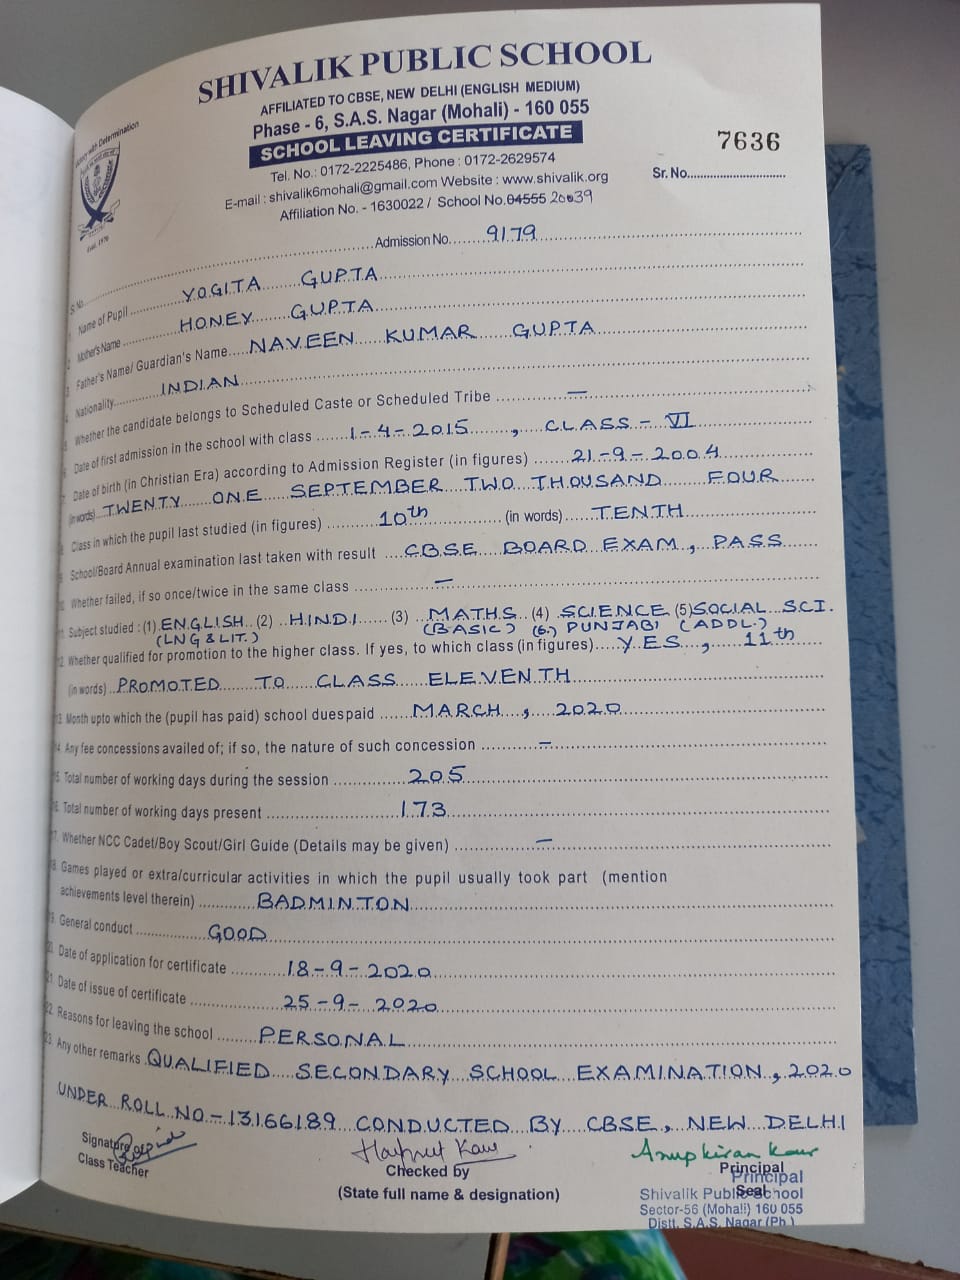 SHIVALIK PUBLIC SCHOOL
AFFILIATED TO CBSE, NEW DELHI (ENGLISH MEDIUM)
Phase - 6, S.A.S. Nagar (Mohali) - 160 055
SCHOOL LEAVING CERTIFICATE
7636
Tel. No.: 0172-2225486, Phone : 0172-2629574
Sr. No.
E-mail : shivalik6mohali@gmail.com Website : www.shivalik.org
Affiliation No. - 1630022 / School No. 04555 20039
S.No. Admission No. 9179
1. Name of Pupil YOGITA GUPTA
2. Mother's Name HONEY GUPTA
3. Father's Name/ Guardian's Name NAVEEN KUMAR GUPTA
4. Nationality INDIAN
5. Whether the candidate belongs to Scheduled Caste or Scheduled Tribe —
6. Date of first admission in the school with class 1-4-2015, CLASS - VI
7. Date of birth (in Christian Era) according to Admission Register (in figures) 21-9-2004
(in words) TWENTY ONE SEPTEMBER TWO THOUSAND FOUR
8. Class in which the pupil last studied (in figures) 10th (in words) TENTH
9. School/Board Annual examination last taken with result CBSE BOARD EXAM, PASS
10. Whether failed, if so once/twice in the same class —
11. Subject studied : (1) ENGLISH (2) HINDI (3) MATHS (4) SCIENCE (5) SOCIAL SCI.
(LNG & LIT.) (BASIC) (6.) PUNJABI (ADDL.)
12. Whether qualified for promotion to the higher class. If yes, to which class (in figures) YES, 11th
(in words) PROMOTED TO CLASS ELEVENTH
13. Month upto which the (pupil has paid) school duespaid MARCH, 2020
14. Any fee concessions availed of; if so, the nature of such concession —
15. Total number of working days during the session 205
16. Total number of working days present 173
17. Whether NCC Cadet/Boy Scout/Girl Guide (Details may be given) —
18. Games played or extra/curricular activities in which the pupil usually took part (mention
achievements level therein) BADMINTON
19. General conduct GOOD
20. Date of application for certificate 18-9-2020
21. Date of issue of certificate 25-9-2020
22. Reasons for leaving the school PERSONAL
23. Any other remarks QUALIFIED SECONDARY SCHOOL EXAMINATION, 2020
UNDER ROLL NO - 13166189 CONDUCTED BY CBSE, NEW DELHI
Signature
Class Teacher
Harpreet Kaur
Checked by
(State full name & designation)
Anup Kiran Kaur
Principal
Seal
Principal
Shivalik Public School
Sector-56 (Mohali) 160 055
Distt. S.A.S. Nagar (Pb.)